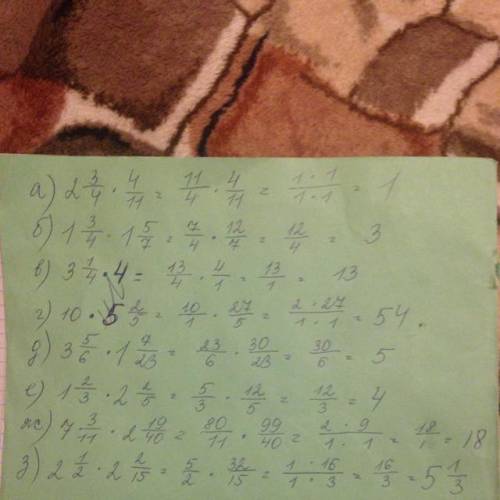 а) 2 3/4 · 4/11 = 11/4 · 4/11 = 1·1/1·1 = 1
б) 1 3/4 · 1 5/7 = 7/4 · 12/7 = 12/4 = 3
в) 3 1/4 · 4 = 13/4 · 4/1 = 13/1 = 13
г) 10 · 5 2/5 = 10/1 · 27/5 = 2·27/1·1 = 54.
д) 3 5/6 · 1 7/23 = 23/6 · 30/23 = 30/6 = 5
е) 1 2/3 · 2 2/5 = 5/3 · 12/5 = 12/3 = 4
ж) 7 3/11 · 2 19/40 = 80/11 · 99/40 = 2·9/1·1 = 18/1 = 18
з) 2 1/2 · 2 2/15 = 5/2 · 32/15 = 1·16/1·3 = 16/3 = 5 1/3